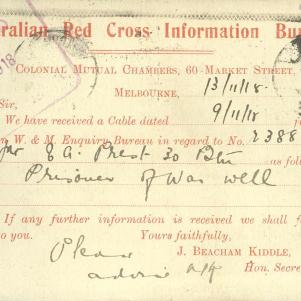 ralian Red Cross Information Bu
COLONIAL MUTUAL CHAMBERS, 60 MARKET STREET,
MELBOURNE,
13/11/18
Sir,
We have received a Cable dated 9/11/18
W. & M. Enquiry Bureau in regard to No. 2388
E G. Prest 30 Btn as fol
Prisoner of War well
If any further information is received we shall f
o you. Yours faithfully,
Please J. BEACHAM KIDDLE,
advise Hon. Secre